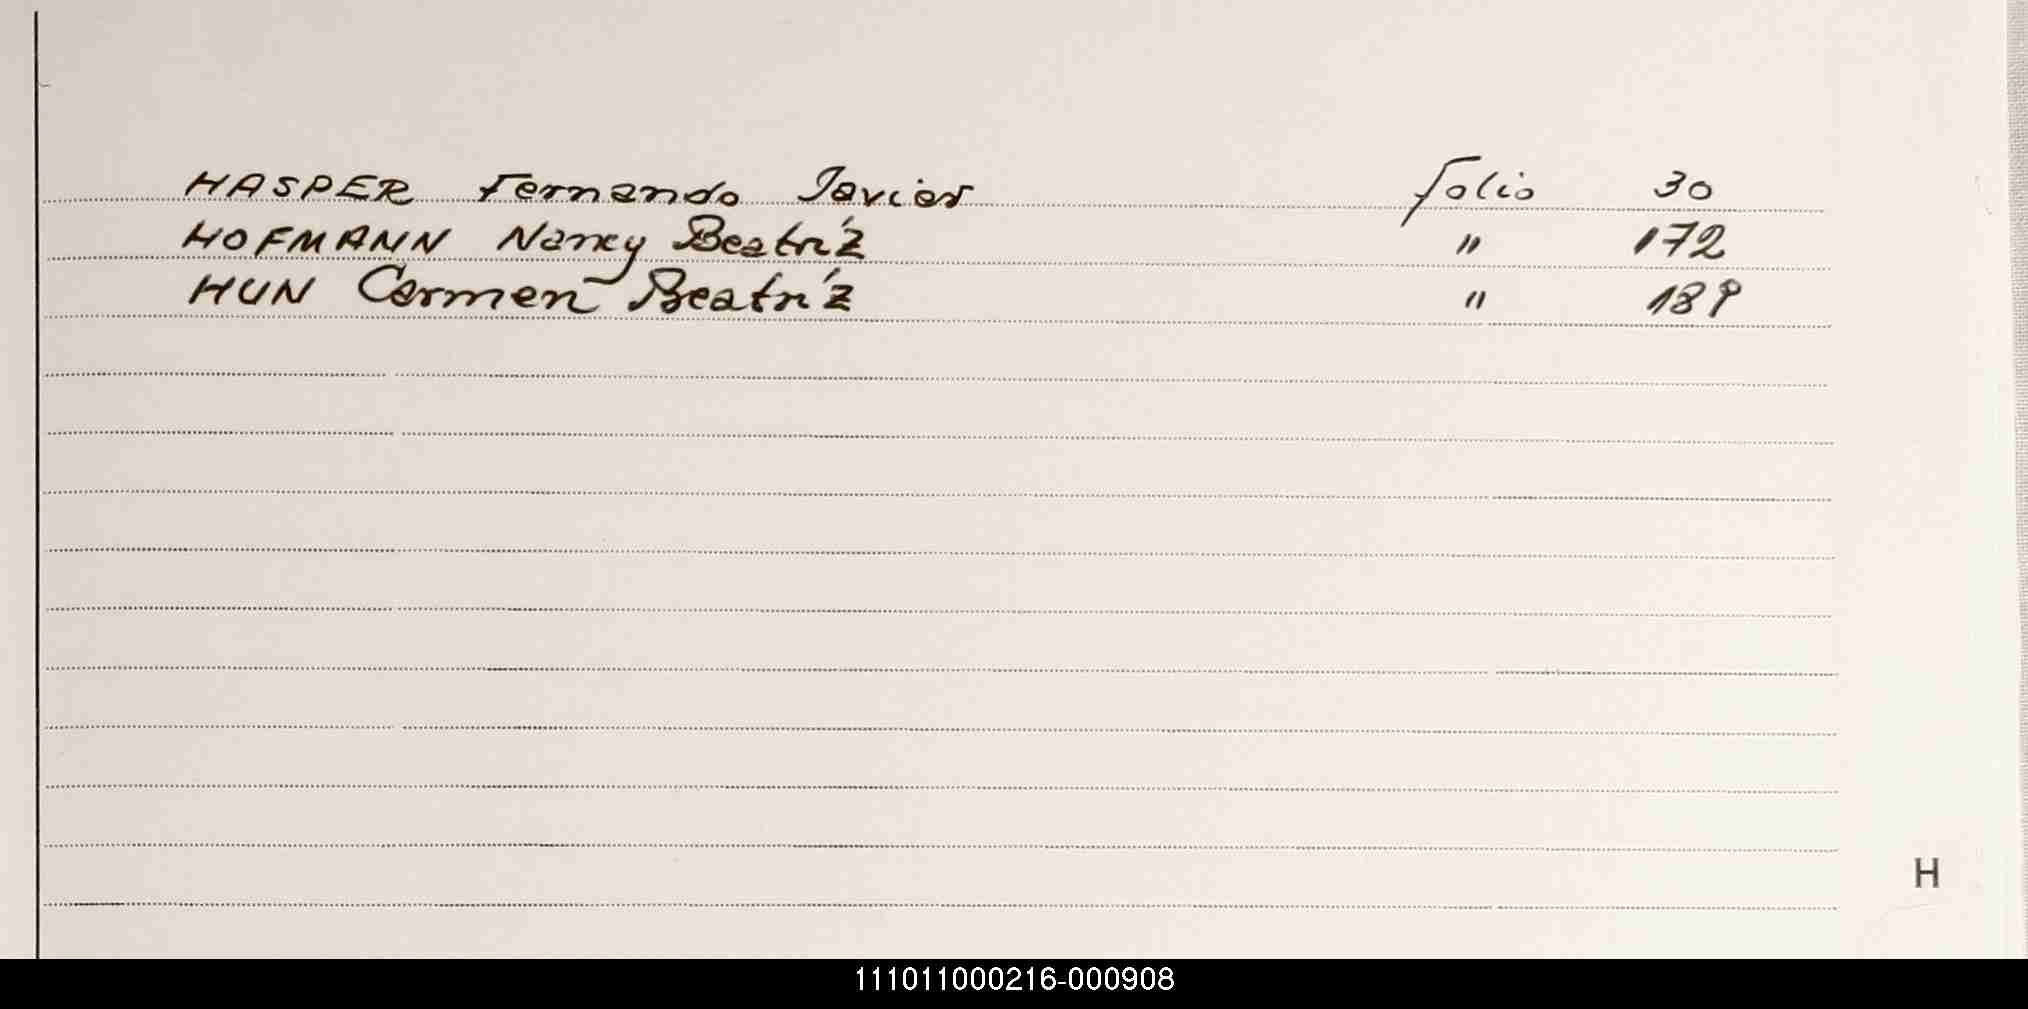 HASPER Fernando Javier folio 30
HOFMANN Nancy Beatríz " 172
HUN Carmen Beatríz " 189
H
111011000216-000908